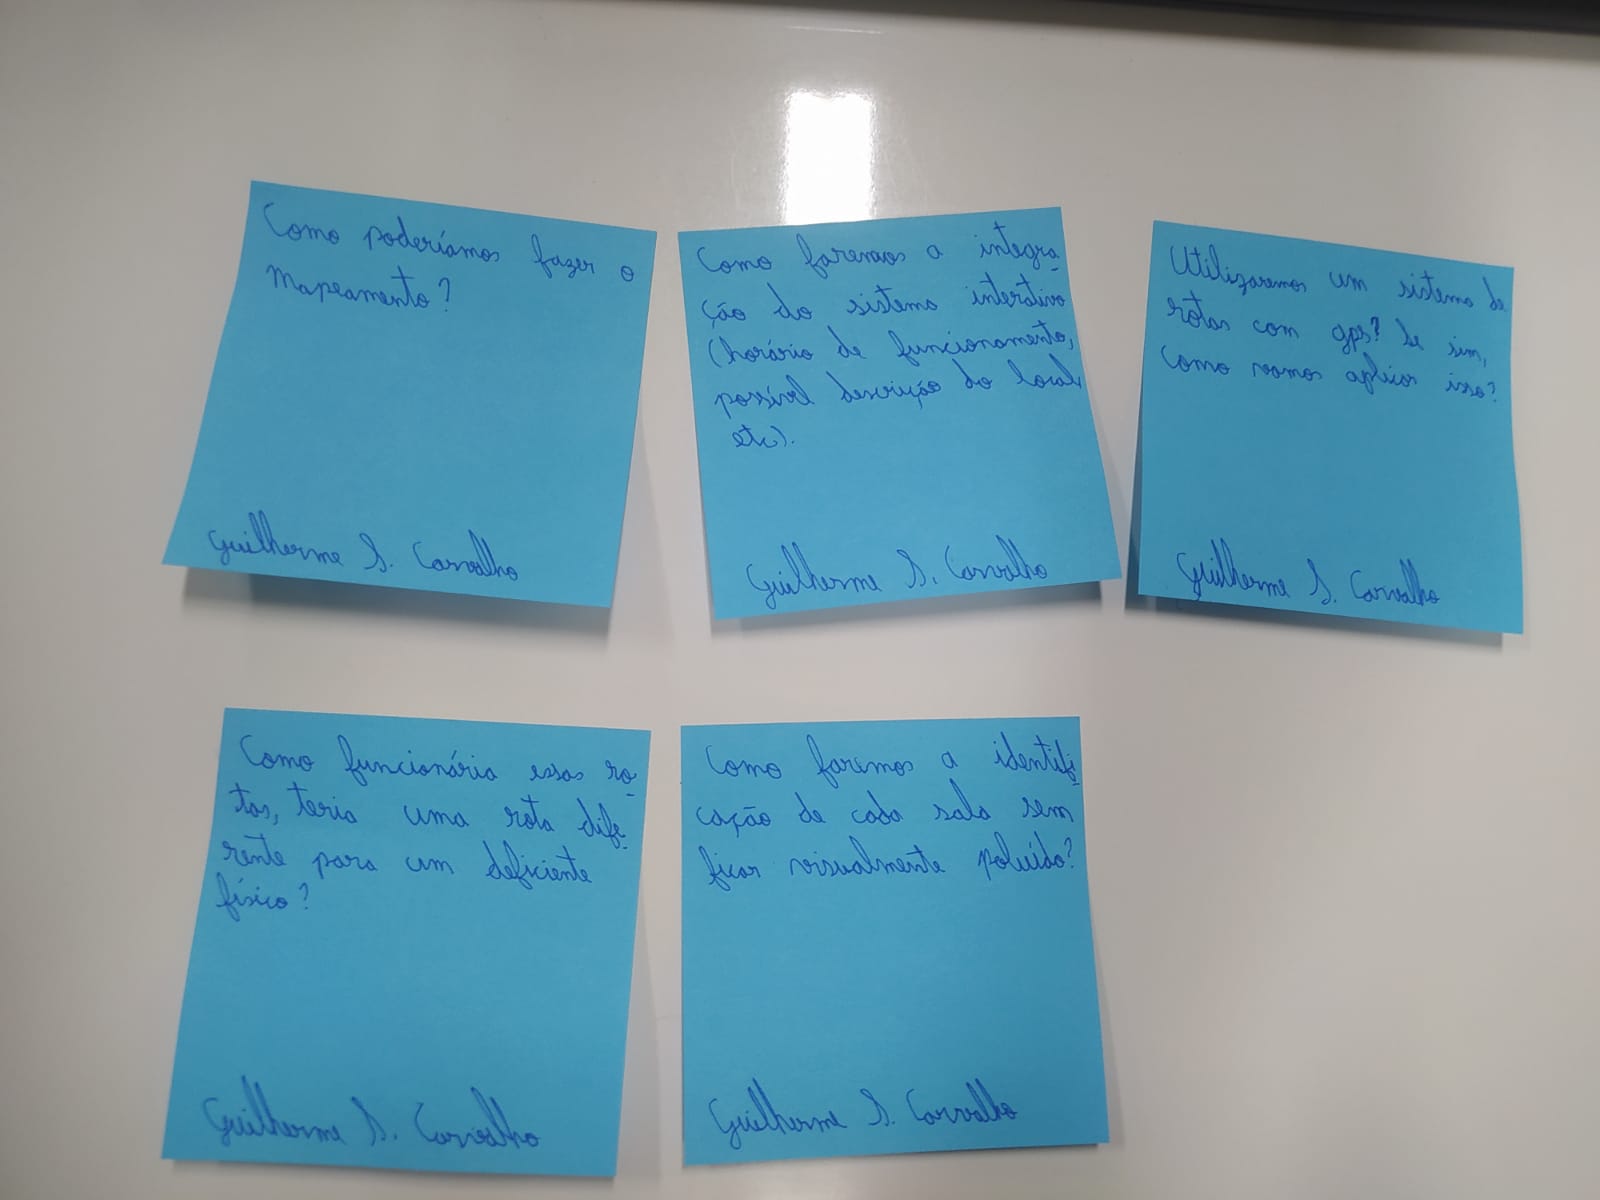 Como poderíamos fazer o
Mapeamento?
Guilherme S. Carvalho
Como faremos a integra-
ção do sistema interativo
(horário de funcionamento,
possível descrição do local,
etc).
Guilherme S. Carvalho
Utilizaremos um sistema de
rotas com gps? Se sim,
como vamos aplicar isso?
Guilherme S. Carvalho
Como funcionária essas ro-
tas, teria uma rota dife-
rente para um deficiente
físico?
Guilherme S. Carvalho
Como faremos a identifi-
cação de cada sala sem
ficar visualmente poluído?
Guilherme S. Carvalho